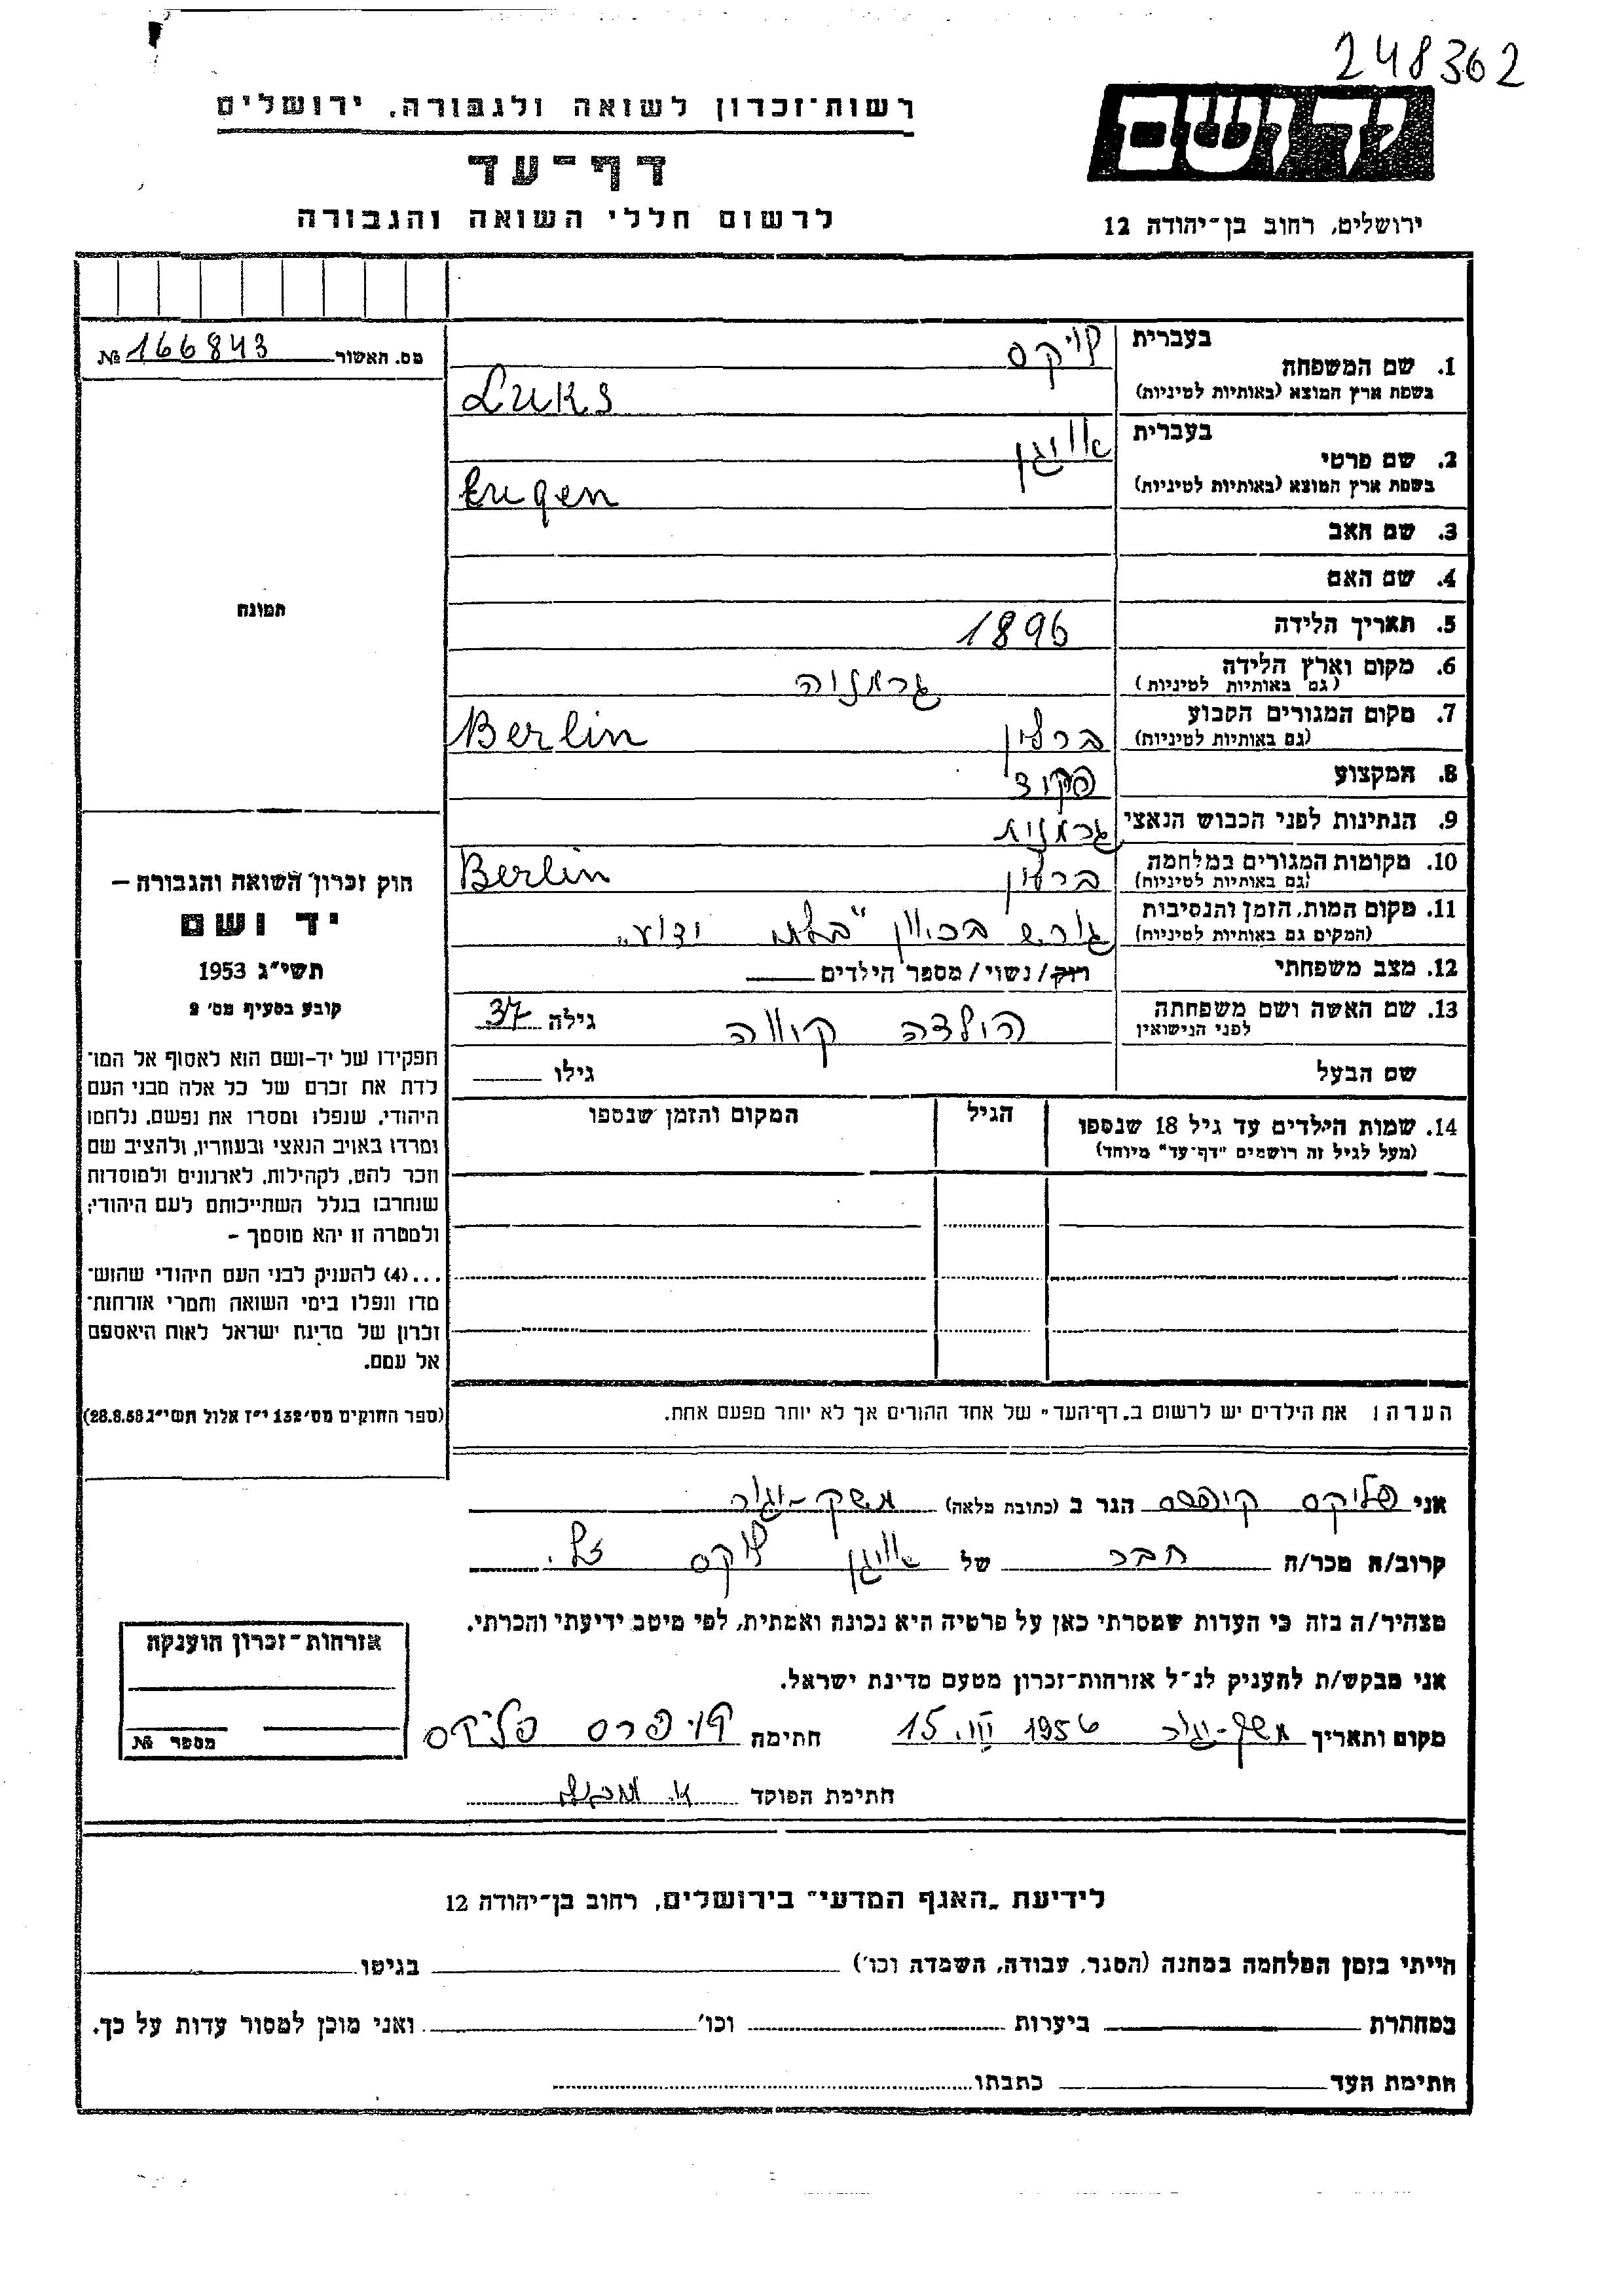 248362
יד ושם
ירושלים, רחוב בן-יהודה 12
רשות-זכרון לשואה ולגבורה, ירושלים
דף-עד
לרשום חללי השואה והגבורה
מס. האשור № 166843
תמונה
חוק זכרון השואה והגבורה –
יד ושם
תשי"ג 1953
קובע בסעיף מס' 2
תפקידו של יד-ושם הוא לאסוף אל המו־
לדת את זכרם של כל אלה מבני העם
היהודי, שנפלו ומסרו את נפשם, נלחמו
ומרדו באויב הנאצי ובעוזריו, ולהציב שם
וזכר להם, לקהילות, לארגונים ולמוסדות
שנחרבו בגלל השתייכותם לעם היהודי;
ולמטרה זו יהא מוסמך –
...(4) להעניק לבני העם היהודי שהוש־
מדו ונפלו בימי השואה והמרי אזרחות־
זכרון של מדינת ישראל לאות היאספם
אל עמם.
(ספר החוקים מס' 132 י"ז אלול תשי"ג 28.8.53)
בעברית
1. שם המשפחה לוקס
בשפת ארץ המוצא (באותיות לטיניות) Luks
בעברית
2. שם פרטי אויגן
בשפת ארץ המוצא (באותיות לטיניות) Eugen
3. שם האב
4. שם האם
5. תאריך הלידה 1896
6. מקום וארץ הלידה גרמניה
(גם באותיות לטיניות)
7. מקום המגורים הקבוע ברלין Berlin
(גם באותיות לטיניות)
8. המקצוע פקיד
9. הנתינות לפני הכבוש הנאצי גרמנית
10. מקומות המגורים במלחמה ברלין Berlin
(גם באותיות לטיניות)
11. מקום המות, הזמן והנסיבות גורש בכוון "בלתי ידוע"
(המקום גם באותיות לטיניות)
12. מצב משפחתי רווק/נשוי/מספר הילדים
13. שם האשה ושם משפחתה הולדה גילה 37
לפני הנישואין
שם הבעל גילו
14. שמות הילדים עד גיל 18 שנספו הגיל המקום והזמן שנספו
(מעל לגיל זה רושמים "דף-עד" מיוחד)
הערה: את הילדים יש לרשום ב"דף-העד" של אחד ההורים אך לא יותר מפעם אחת.
אני פליקס קופרס הגר ב (כתובת מלאה) משק-יגור
קרוב/ה מכר/ה חבר של אויגן לוקס ז"ל.
מצהיר/ה בזה כי העדות שמסרתי כאן על פרטיה היא נכונה ואמתית, לפי מיטב ידיעתי והכרתי.
אני מבקש/ת להעניק לנ"ל אזרחות-זכרון מטעם מדינת ישראל.
מקום ותאריך משק-יגור 15.III.1956 חתימה קופרס פליקס
חתימת הפוקד
אזרחות-זכרון הוענקה
מספר №
לידיעת "האגף המדעי" בירושלים, רחוב בן-יהודה 12
הייתי בזמן המלחמה במחנה (הסגר, עבודה, השמדה וכו') בגיטו
במחתרת ביערות וכו' ואני מוכן למסור עדות על כך.
חתימת העד כתבתו